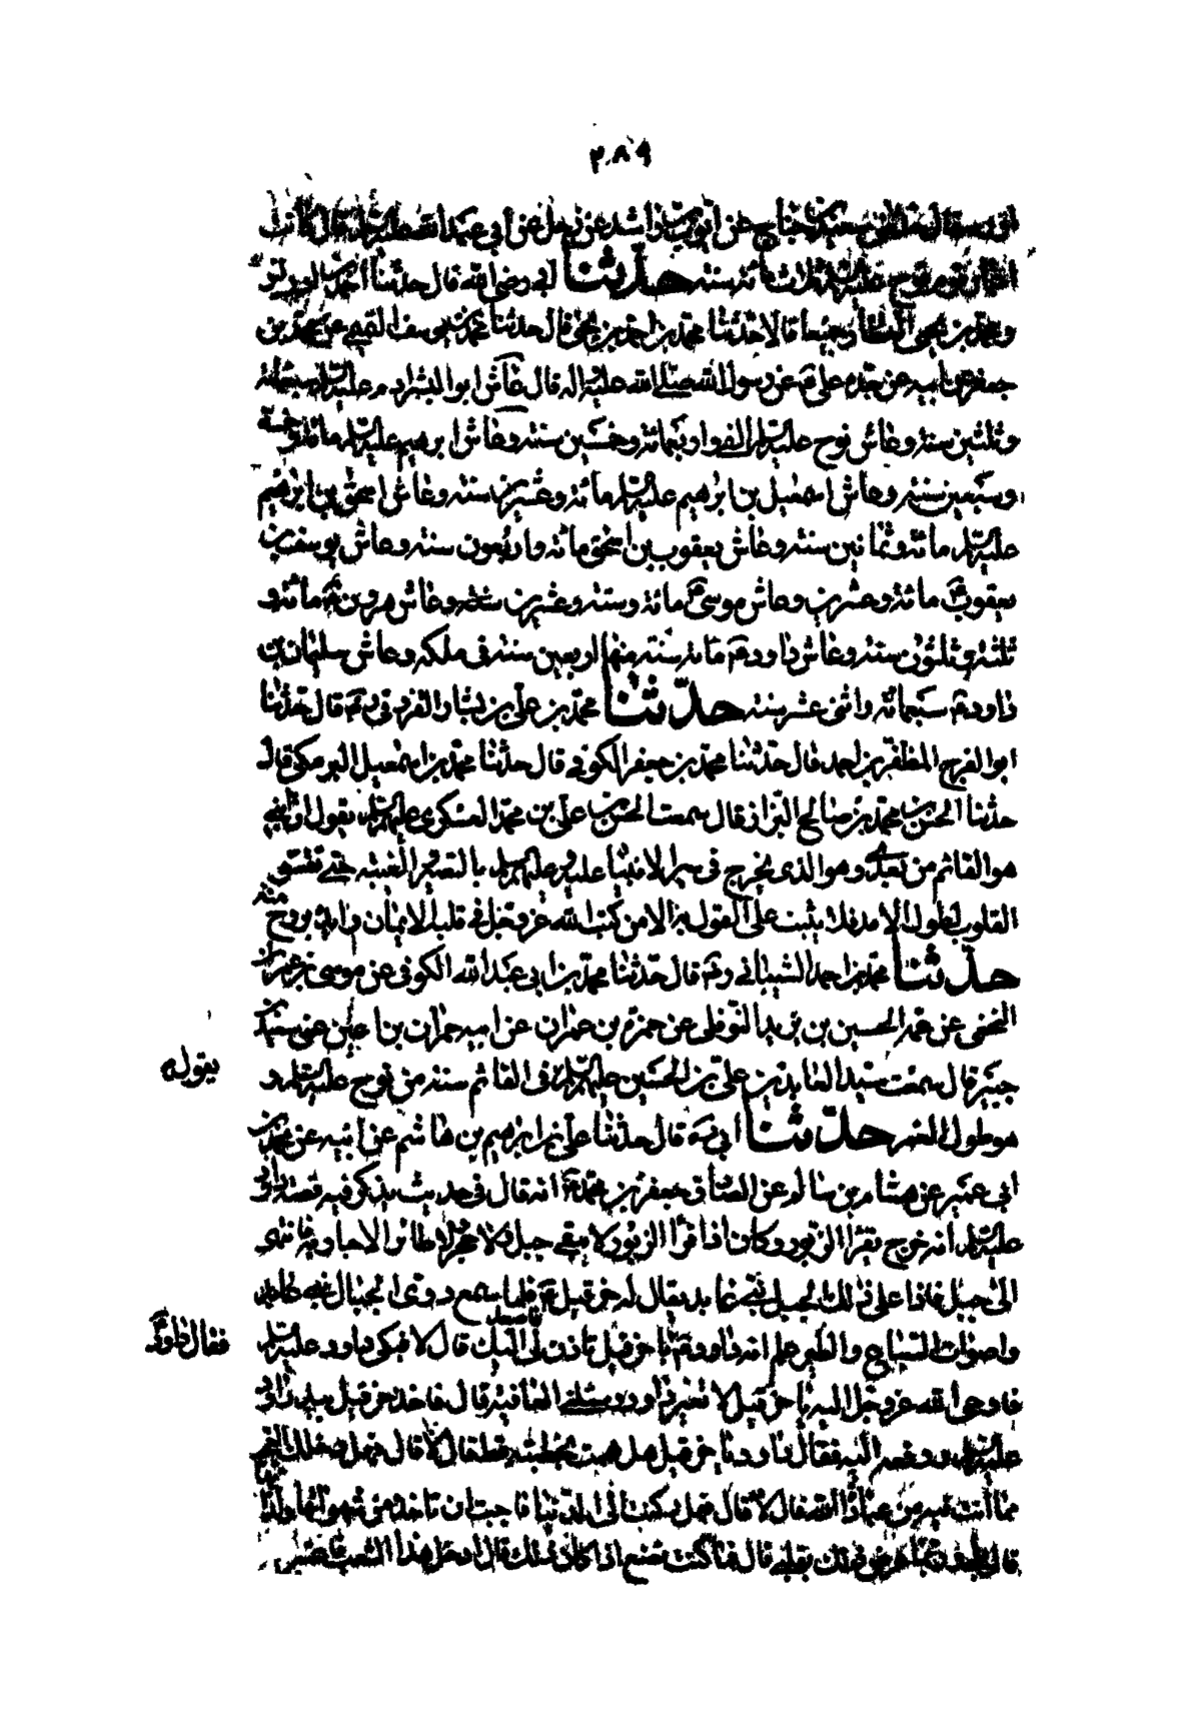 ٢٨٩
سعيد بن جناح عن أيوب بن راشد عن رجل عن أبي عبد الله عليه السلام قال كانت
أعمار قوم نوح عليه السلام ثلاثمائة سنة حدّثنا أبي رضي الله قال حدثنا أحمد بن ادريس
ومحمد بن يحيى العطار جميعا قالا حدثنا محمد بن احمد بن يحيى قال حدثنا محمد بن يوسف التميمي عن محمد بن
جعفر عن أبيه عن جده علي عن رسول الله صلى الله عليه واله قال عاش ابو البشر ادم عليه السلام سبعمائة
وثلثين سنة وعاش نوح عليه السلم الفى واربعمائة وخمسين سنة وعاش ابرهيم عليه السلم مائة وخمسة
وسبعين سنة وعاش اسمعيل بن ابرهيم عليه السلم مائة وعشرين سنة وعاش اسحق بن ابرهيم
عليه السلم مائة وثمانين سنة وعاش يعقوب بن اسحق مائة واربعون سنة وعاش يوسف بن
يعقوب ع مائة وعشرين وعاش موسى ع مائة وستة وعشرين سنة وعاش هرون ع مائة و
ثلثة وثلثون سنة وعاش داود ع مائة سنة منها اربعين سنة في ملكه وعاش سليمان بن
داود ع سبعمائة واثنى عشر سنة حدّثنا محمد بن علي بن بشار القزويني ره قال حدثنا
ابو الفرج المظفر بن احمد قال حدثنا محمد بن جعفر الكوفي قال حدثنا محمد بن اسمعيل البرمكي قال
حدثنا الحسن بن محمد بن صالح البزاز قال سمعت الحسن بن علي بن محمد العسكري عليهم السلم يقول ان ابني
هو القائم من بعدي وهو الذي يجرج في سير الانبياء عليهم السلم بالتعمير والغيبة حتى تقسو
القلوب لطول الامد فلا يثبت على القول به الا من كتب الله عز وجل في قلبه الايمان وايده بروح منه
حدّثنا محمد بن احمد الشيباني ره قال حدثنا محمد بن ابي عبد الله الكوفي عن موسى بن عمران
النخعي عن عمه الحسين بن يزيد النوفلي عن حمزة بن حمران عن ابيه حمران بن اعين عن سعيد بن
جبير قال سمعت سيد العابدين علي بن الحسين عليهم السلم في القائم سنة من نوح عليه السلم و
يقول
هو طول العمر حدّثنا أبي ره قال حدثنا علي بن ابرهيم بن هاشم عن ابيه عن محمد بن
ابي عمير عن هشام بن سالم عن الصادق جعفر بن محمد ع انه قال في حديث يذكر فيه قصة داود
عليه السلم انه خرج يقرأ الزبور وكان اذا قرأ الزبور لا يبقى جبل ولا حجر ولا طائر الا جاوبه فانتهى
الى جبل فاذا على ذلك الجبل نبي عابد يقال له حزقيل ع فلما سمع دوى الجبال
واصوات السباع والطير علم انه داود ع فقال داود يا حزقيل تاذن لي فاصعد اليك قال لا فبكى داود عليه السلم
فاوحى الله عز وجل اليه يا حزقيل لا تعير داود وسلني العافية قال فاخذ حزقيل بيد داود
عليه السلم ورفعه اليه فقال داود يا حزقيل هل هممت بخطيئة قط فقال لا قال فهل دخلك العجب
مما انت فيه من عبادة الله قال لا قال فهل ركنت الى الدنيا فاحببت ان تاخذ من شهواتها ولذتها
قال بلى ربما عرض ذلك بقلبي قال فما كنت تصنع اذا كان ذلك قال ادخل هذا الشعب فاعتبر